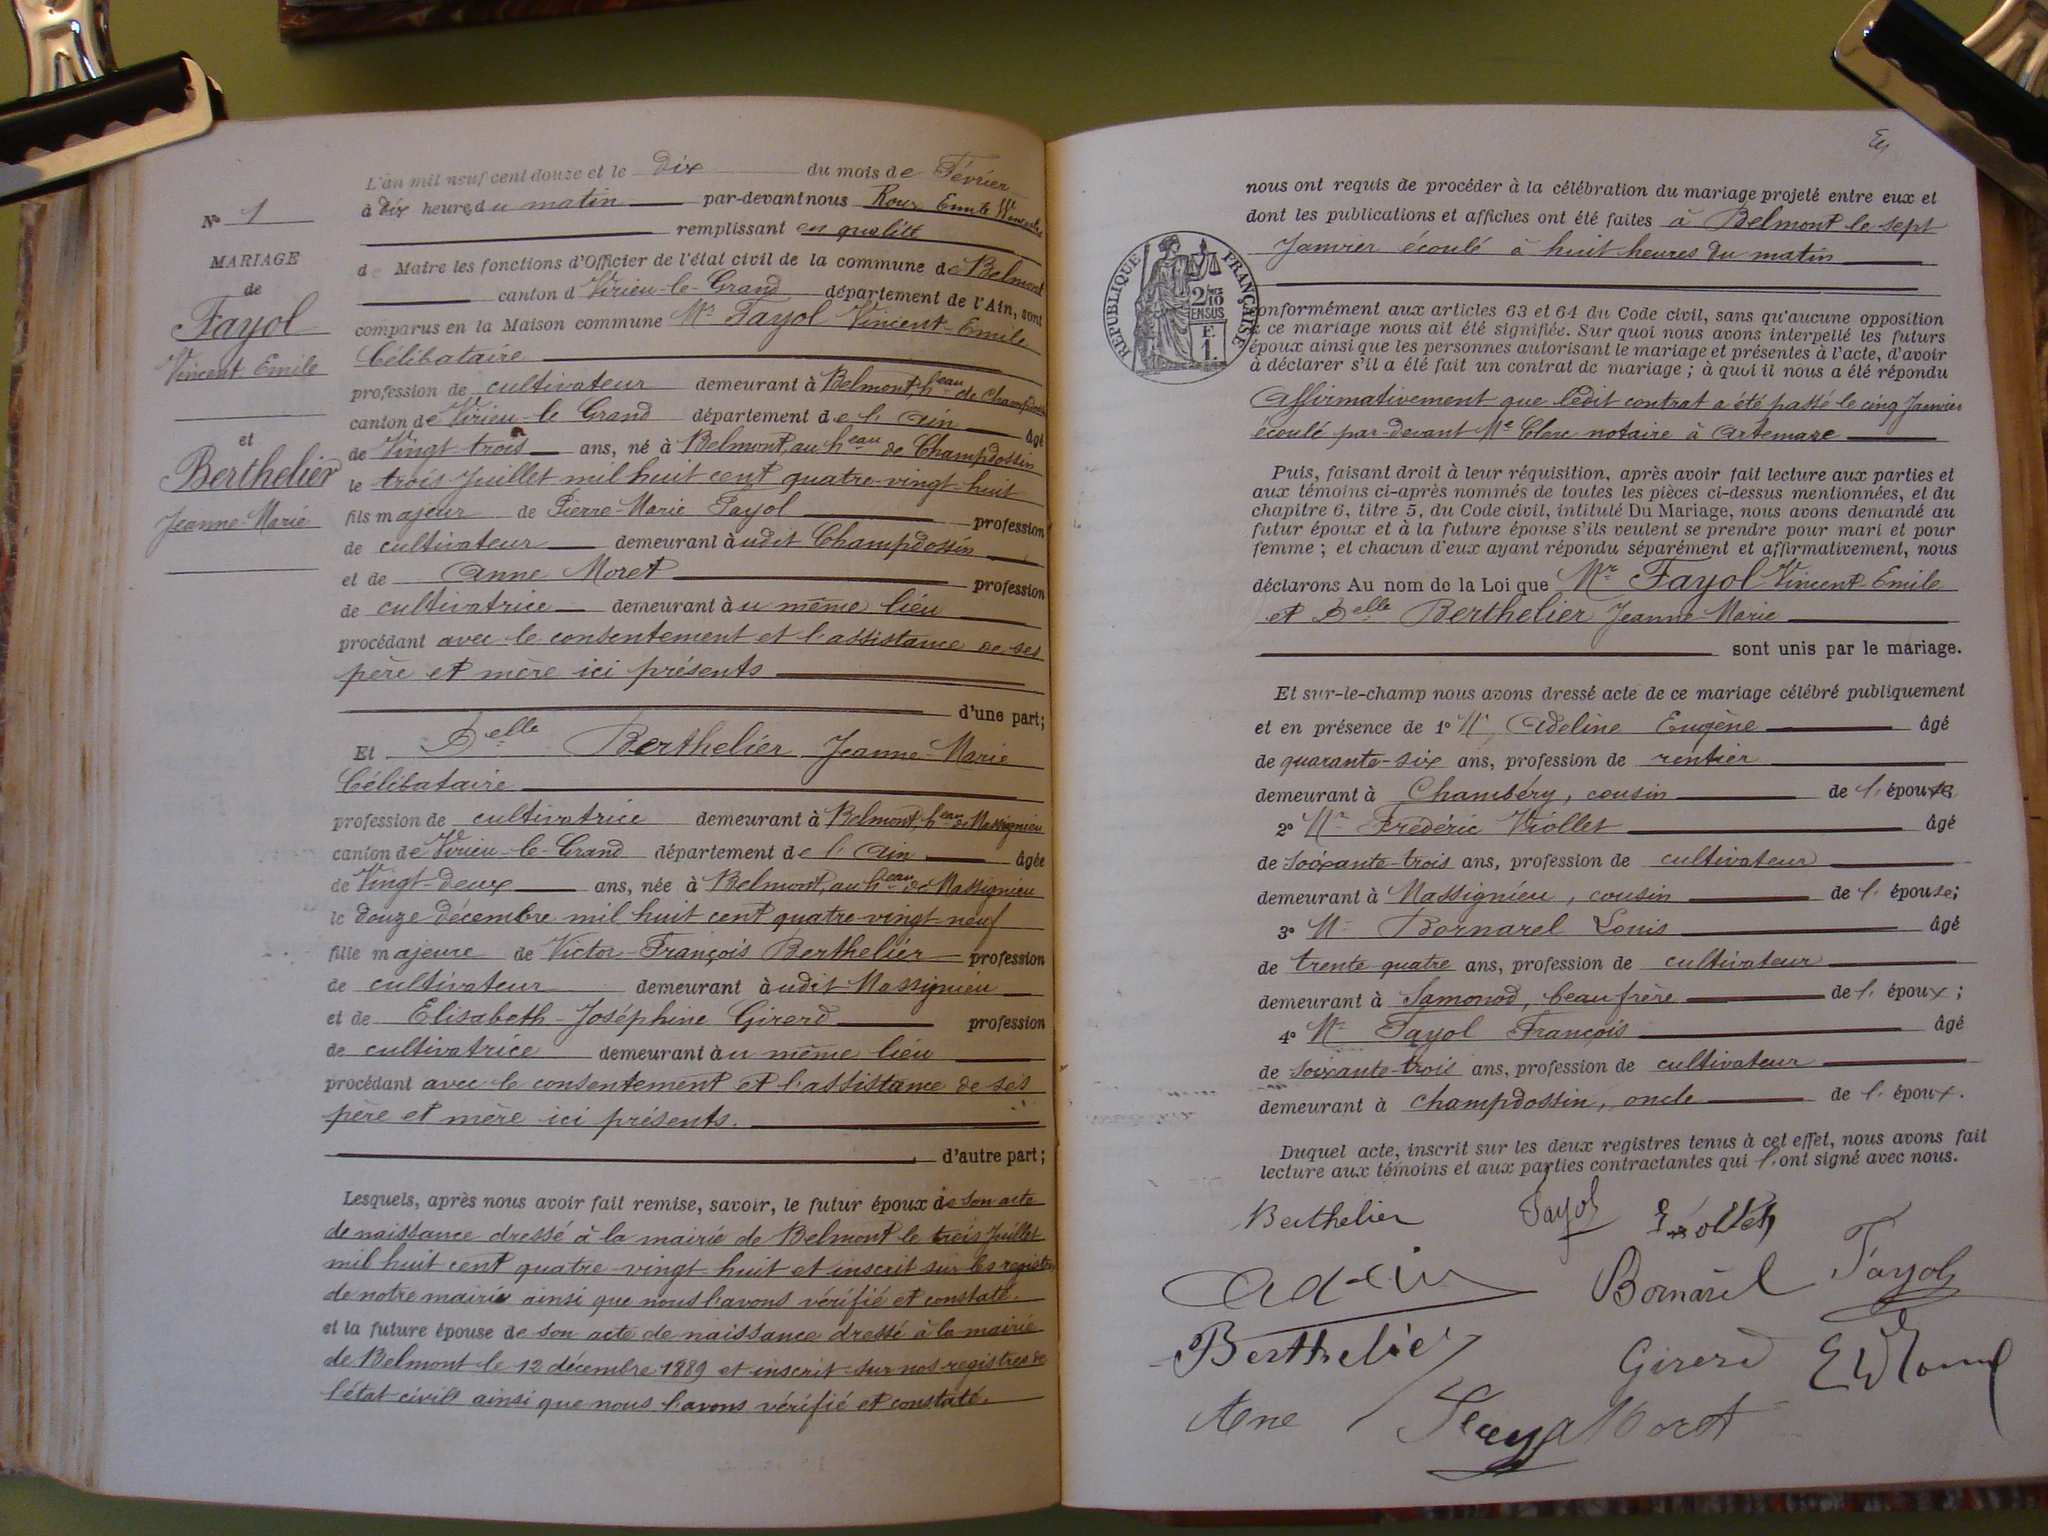 N° 1
MARIAGE
de
Fayol
Vincent Emile
et
Berthelier
Jeanne-Marie
L'an mil neuf cent douze et le dix du mois de Février
à dix heures du matin par-devant nous Roux Emile
remplissant en qualité
de Maire les fonctions d'Officier de l'état civil de la commune de Belmont
canton d Virieu-le-Grand département de l'Ain, sont
comparus en la Maison commune Mr Fayol Vincent-Emile
Célibataire
profession de cultivateur demeurant à Belmont, heau de Champdossin
canton de Virieu-le Grand département de l'Ain âgé
de Vingt trois ans, né à Belmont, au heau de Champdossin
le trois Juillet mil huit cent quatre-vingt-huit
fils majeur de Pierre-Marie Fayol profession
de cultivateur demeurant àudit Champdossin
et de Anne Moret profession
de cultivatrice demeurant àu même lieu
procédant avec le consentement et l'assistance de ses
père et mère ici présents
d'une part;
Et Delle Berthelier Jeanne-Marie
Célibataire
profession de cultivatrice demeurant à Belmont, heau de Massignieu
canton de Virieu-le-Grand département de l'Ain âgée
de Vingt-deux ans, née à Belmont, au heau de Massignieu
le douze décembre mil huit cent quatre-vingt-neuf
fille majeure de Victor-François Berthelier profession
de cultivateur demeurant àudit Massignieu
et de Elisabeth-Joséphine Girerd profession
de cultivatrice demeurant àu même lieu
procédant avec le consentement et l'assistance de ses
père et mère ici présents.
d'autre part;
Lesquels, après nous avoir fait remise, savoir, le futur époux de son acte
de naissance dressé à la mairie de Belmont le trois Juillet
mil huit cent quatre-vingt-huit et inscrit sur les registres
de notre mairie ainsi que nous l'avons vérifié et constaté.
et la future épouse de son acte de naissance dressé à la mairie
de Belmont le 12 décembre 1889 et inscrit sur nos registres de
l'état-civil ainsi que nous l'avons vérifié et constaté.
nous ont requis de procéder à la célébration du mariage projeté entre eux et
dont les publications et affiches ont été faites à Belmont le sept
Janvier écoulé à huit heures du matin
RÉPUBLIQUE FRANÇAISE
2/10
EN SUS
F.
1.
onformément aux articles 63 et 64 du Code civil, sans qu'aucune opposition
à ce mariage nous ait été signifiée. Sur quoi nous avons interpellé les futurs
époux ainsi que les personnes autorisant le mariage et présentes à l'acte, d'avoir
à déclarer s'il a été fait un contrat de mariage; à quoi il nous a été répondu
Affirmativement que ledit contrat a été passé le cinq Janvier
écoulé par-devant Me Clerc notaire à Artemare
Puis, faisant droit à leur réquisition, après avoir fait lecture aux parties et
aux témoins ci-après nommés de toutes les pièces ci-dessus mentionnées, et du
chapitre 6, titre 5, du Code civil, intitulé Du Mariage, nous avons demandé au
futur époux et à la future épouse s'ils veulent se prendre pour mari et pour
femme; et chacun d'eux ayant répondu séparément et affirmativement, nous
déclarons Au nom de la Loi que Mr Fayol Vincent-Emile
et Delle Berthelier Jeanne-Marie
sont unis par le mariage.
Et sur-le-champ nous avons dressé acte de ce mariage célébré publiquement
et en présence de 1° Mr Adeline Eugène âgé
de quarante-six ans, profession de rentier
demeurant à Chambéry, cousin de l'épouse
2° Mr Frédéric Viollet âgé
de soixante-trois ans, profession de cultivateur
demeurant à Massignieu, cousin de l'épouse;
3° Mr Bornarel Louis âgé
de trente quatre ans, profession de cultivateur
demeurant à Samonod, beau frère de l'époux;
4° Mr Fayol François âgé
de soixante-trois ans, profession de cultivateur
demeurant à Champdossin, oncle de l'époux.
Duquel acte, inscrit sur les deux registres tenus à cet effet, nous avons fait
lecture aux témoins et aux parties contractantes qui l'ont signé avec nous.
Berthelier Fayol Viollet
Bornarel Fayol
Berthelier Girerd
Ane Moret